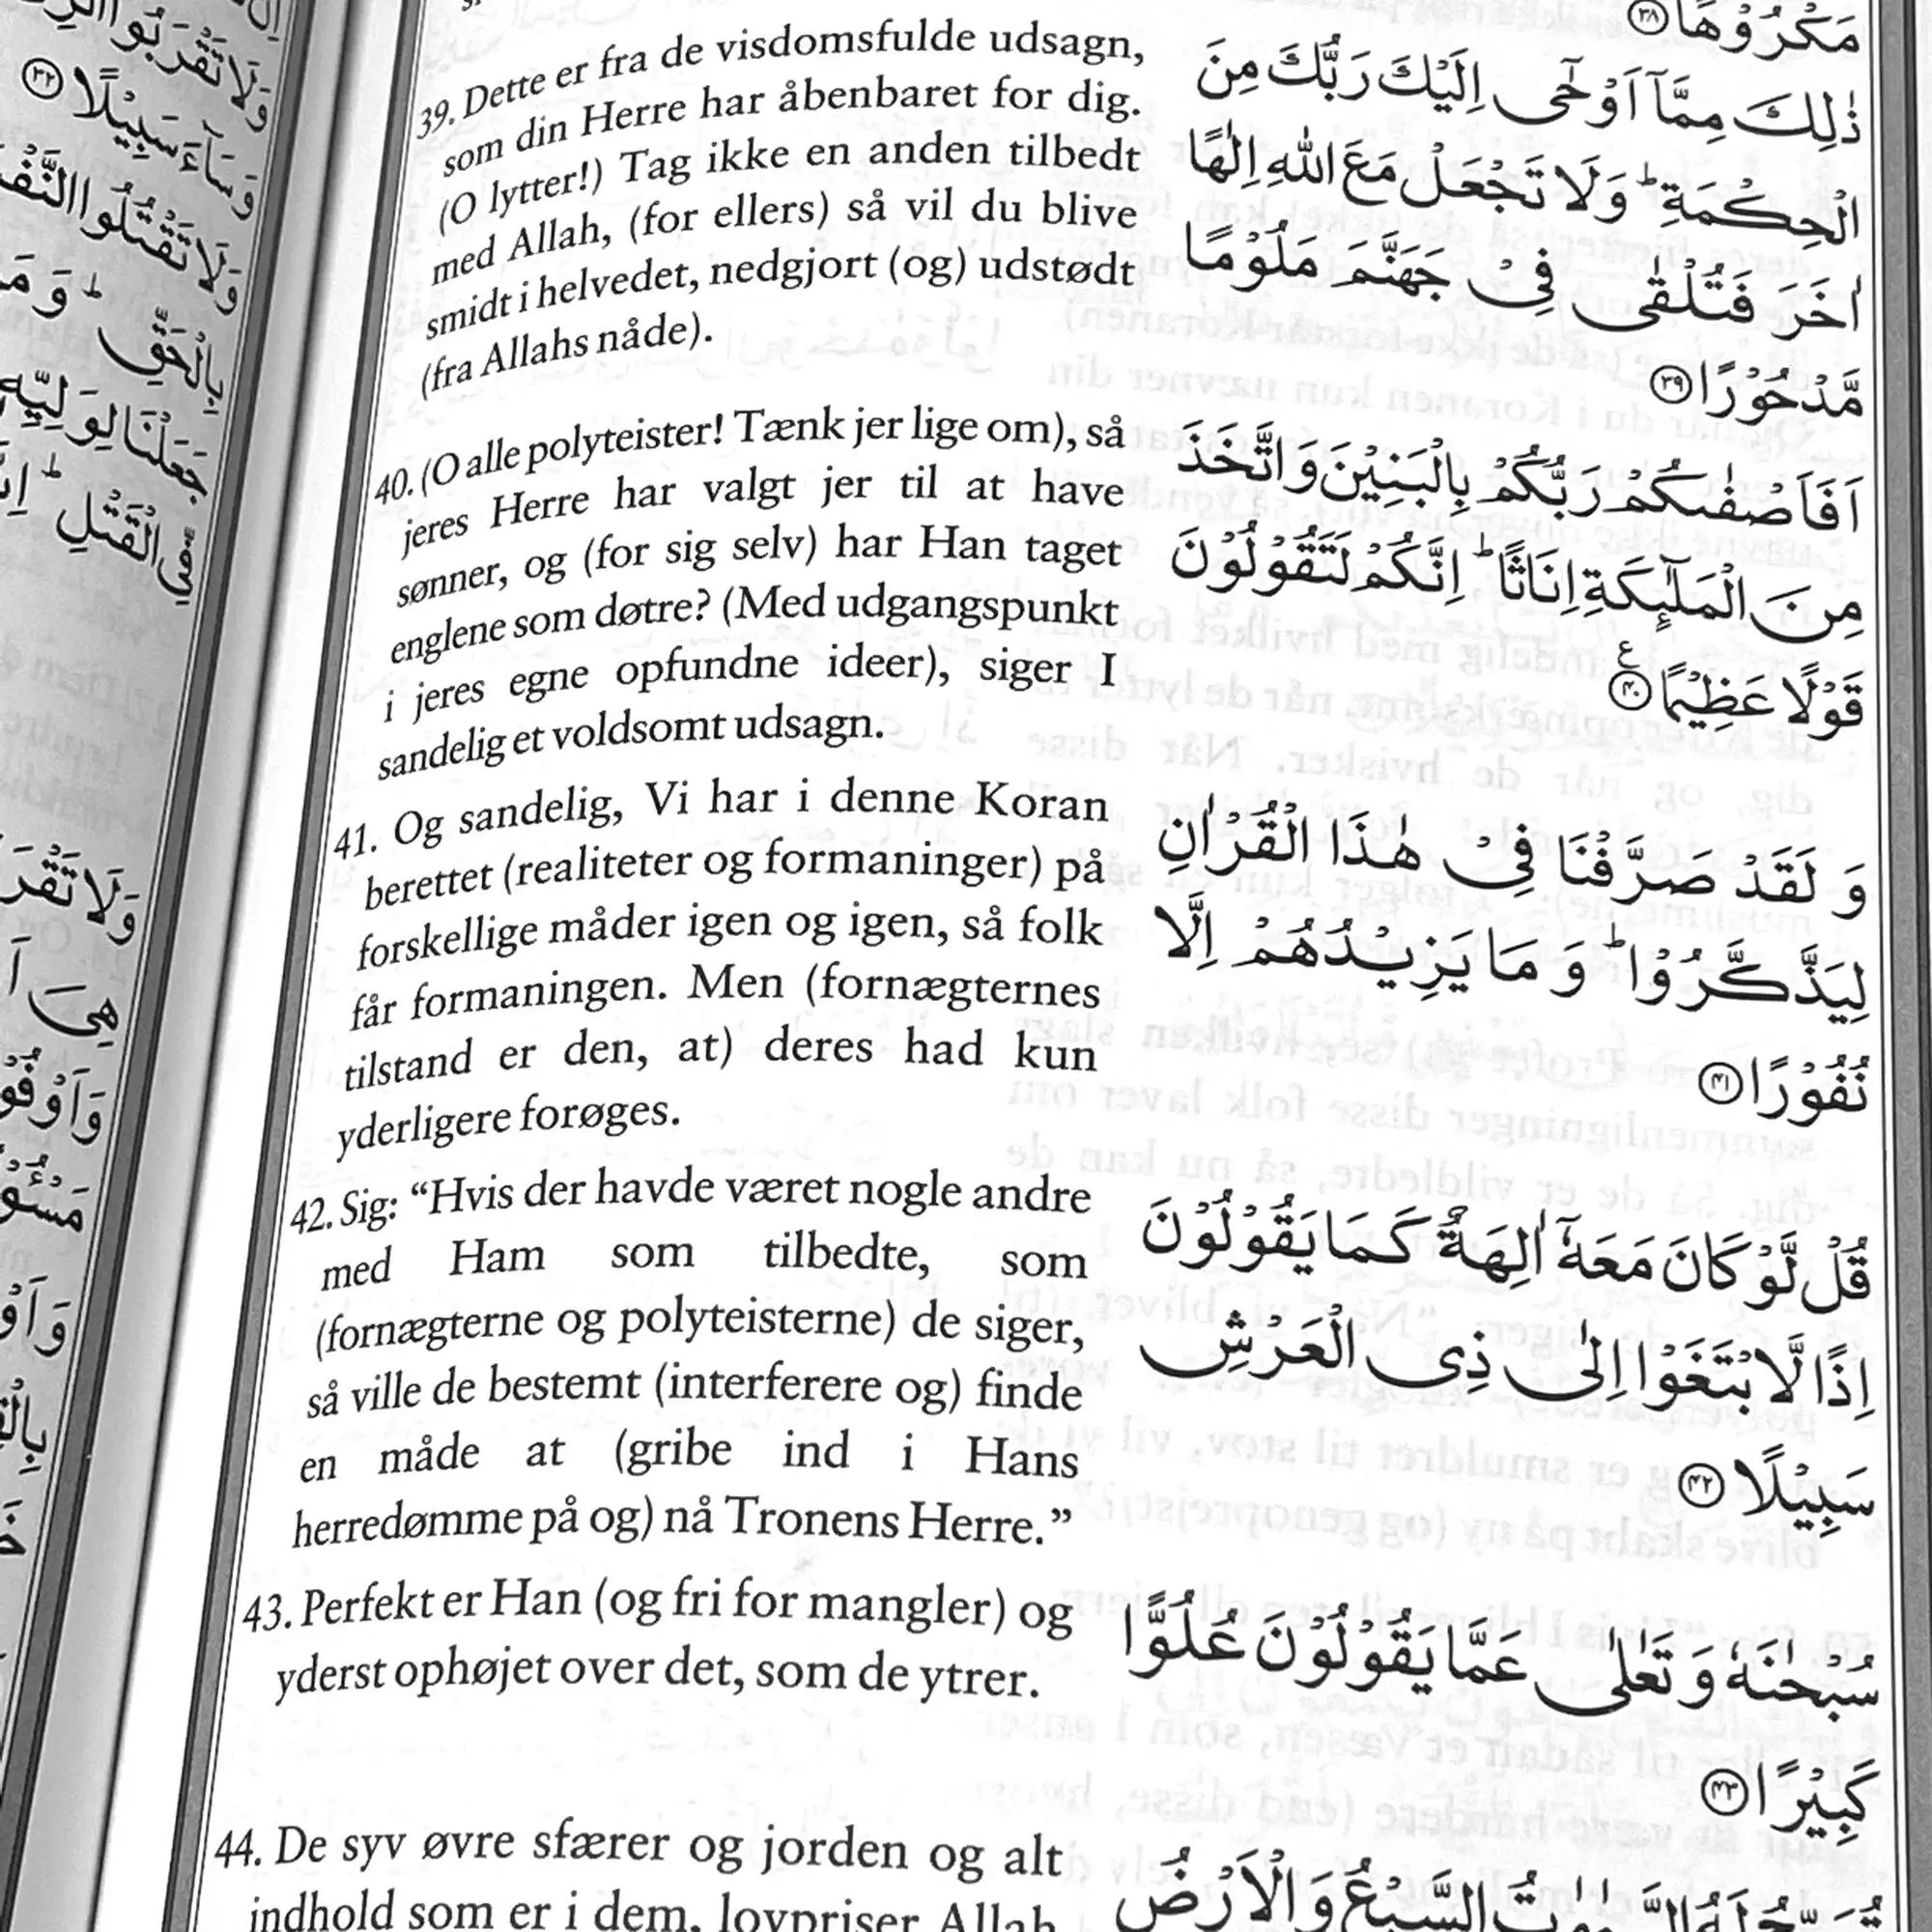 39. Dette er fra de visdomsfulde udsagn,
som din Herre har åbenbaret for dig.
(O lytter!) Tag ikke en anden tilbedt
med Allah, (for ellers) så vil du blive
smidt i helvedet, nedgjort (og) udstødt
(fra Allahs nåde).
40. (O alle polyteister! Tænk jer lige om), så
jeres Herre har valgt jer til at have
sønner, og (for sig selv) har Han taget
englene som døtre? (Med udgangspunkt
i jeres egne opfundne ideer), siger I
sandelig et voldsomt udsagn.
41. Og sandelig, Vi har i denne Koran
berettet (realiteter og formaninger) på
forskellige måder igen og igen, så folk
får formaningen. Men (fornægternes
tilstand er den, at) deres had kun
yderligere forøges.
42. Sig: “Hvis der havde været nogle andre
med Ham som tilbedte, som
(fornægterne og polyteisterne) de siger,
så ville de bestemt (interferere og) finde
en måde at (gribe ind i Hans
herredømme på og) nå Tronens Herre.”
43. Perfekt er Han (og fri for mangler) og
yderst ophøjet over det, som de ytrer.
44. De syv øvre sfærer og jorden og alt
indhold som er i dem, lovpriser Allah
مَكْرُوْهًا ۝۳۸
ذٰلِكَ مِمَّاۤ اَوْحٰۤى اِلَيْكَ رَبُّكَ مِنَ
الْحِكْمَةِ ؕ وَلَا تَجْعَلْ مَعَ اللّٰهِ اِلٰهًا
اٰخَرَ فَتُلْقٰى فِيْ جَهَنَّمَ مَلُوْمًا
مَّدْحُوْرًا ۝۳۹
اَفَاَصْفٰىكُمْ رَبُّكُمْ بِالْبَنِيْنَ وَاتَّخَذَ
مِنَ الْمَلٰٓىِٕكَةِ اِنَاثًا ؕ اِنَّكُمْ لَتَقُوْلُوْنَ
قَوْلًا عَظِيْمًا ۝۴۰ ع
وَ لَقَدْ صَرَّفْنَا فِيْ هٰذَا الْقُرْاٰنِ
لِيَذَّكَّرُوْا ؕ وَ مَا يَزِيْدُهُمْ اِلَّا
نُفُوْرًا ۝۴۱
قُلْ لَّوْ كَانَ مَعَهٗۤ اٰلِهَةٌ كَمَا يَقُوْلُوْنَ
اِذًا لَّابْتَغَوْا اِلٰى ذِي الْعَرْشِ
سَبِيْلًا ۝۴۲
سُبْحٰنَهٗ وَ تَعٰلٰى عَمَّا يَقُوْلُوْنَ عُلُوًّا
كَبِيْرًا ۝۴۳
السَّبْعُ وَ الْاَرْضُ
وَلَا تَقْرَبُوا
وَسَآءَ سَبِيْلًا ۝۳۲
وَلَا تَقْتُلُوا النَّفْ
بِالْحَقِّ ؕ وَ مَ
جَعَلْنَا لِوَلِيِّهٖ
فِّي الْقَتْلِ ؕ اِ
وَلَا تَقْرَ
هِيَ اَ
وَاَوْفُوْ
مَسْـُٔوْ
وَ اَوْ